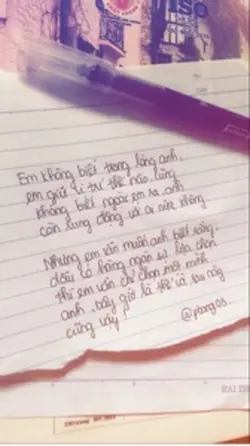 Em không biết trong lòng anh,
em giữ vị trí thế nào, cũng
không biết ngoài em ra, anh
còn rung động với ai nữa không.
Nhưng em vẫn muốn anh biết rằng.
dẫu có hàng ngàn sự lựa chọn
thì em vẫn chỉ chọn một mình
anh, bây giờ là thế và sau này
cũng vậy!